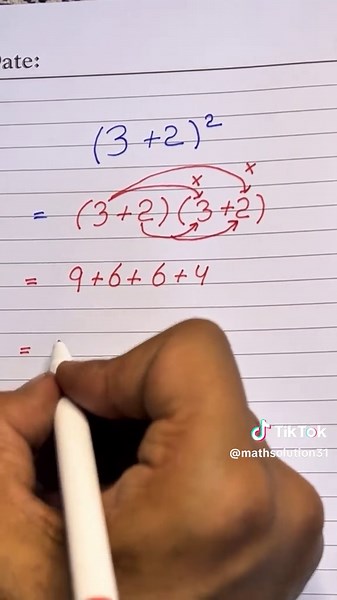 ate:
(3+2)²
x x
= (3+2)(3+2)
= 9+6+6+4
=
TikTok
@mathsolution31